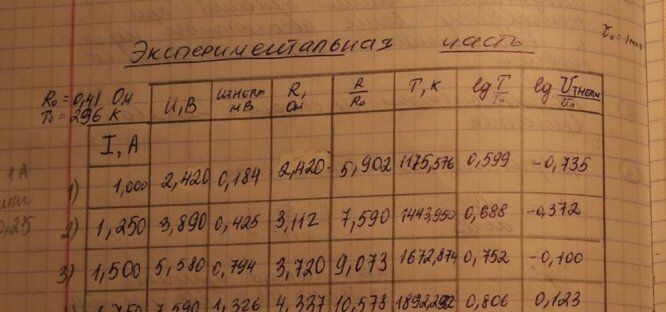 τ₀ = 1
Экспериментальная часть
R₀ = 0,41 Ом
T₀ = 296 К
I, А U, В Uтерм мВ R, Ом R/R₀ T, К lg T/T₀ lg Uтерм/U₀
1) 1,000 2,420 0,184 2,420 5,902 1175,576 0,599 -0,735
2) 1,250 3,890 0,425 3,112 7,590 1443,950 0,688 -0,372
3) 1,500 5,580 0,794 3,720 9,073 1672,874 0,752 -0,100
1,750 7,590 1,326 4,337 10,578 1892,292 0,806 0,123